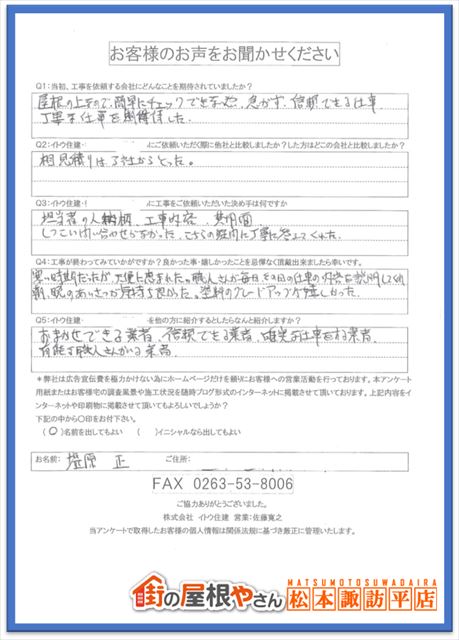 お客様のお声をお聞かせください
Q1:当初、工事を依頼する会社にどんなことを期待されていましたか？
屋根の上なので、簡単にチェックできない為、急がず、信頼できる仕事
丁寧な仕事を期待した。
Q2:イトウ住建・ にご依頼いただく際に他社と比較しましたか？した方はどこの会社と比較しましたか？
相見積りは 社からとった。
Q3:イトウ住建・ に工事をご依頼いただいた決め手は何ですか
担当者の人柄、工事内容、費用面
しつこい問い合わせがなかった、こちらの疑問に丁寧に答えてくれた。
Q4:工事が終わってみていかがですか？良かった事・嬉しかったことを忌憚なく頂戴出来ましたら幸いです。
寒い時期だったが、天候に恵まれた。職人さんが毎日その日の仕事の内容を説明してくれ
朝、晩のあいさつが気持ち良かった。塗料のグレードアップが嬉しかった。
Q5:イトウ住建・ を他の方に紹介するとしたらなんと紹介しますか？
おまかせできる業者、信頼できる業者、確実な仕事をする業者、
有能な職人さんがいる業者
＊弊社は広告宣伝費を極力かけない為にホームページだけを頼りにお客様への営業活動を行っております。本アンケート
用紙またはお客様宅の調査風景や施工状況を随時ブログ形式のインターネットに掲載させて頂いております。上記内容をイ
ンターネットや印刷物に掲載させて頂いてもよろしいでしょうか？
下記の中から〇印をお付下さい。
（〇）名前を出してもよい （ ）イニシャルなら出してもよい
お名前： 塩原 正 ご住所：
FAX 0263-53-8006
ご協力ありがとうございました。
株式会社 イトウ住建 営業：佐藤寛之
当アンケートで取得したお客様の個人情報は関係法規に基づき厳正に管理いたします。
街の屋根やさん
MATSUMOTOSUWADAIRA
松本諏訪平店